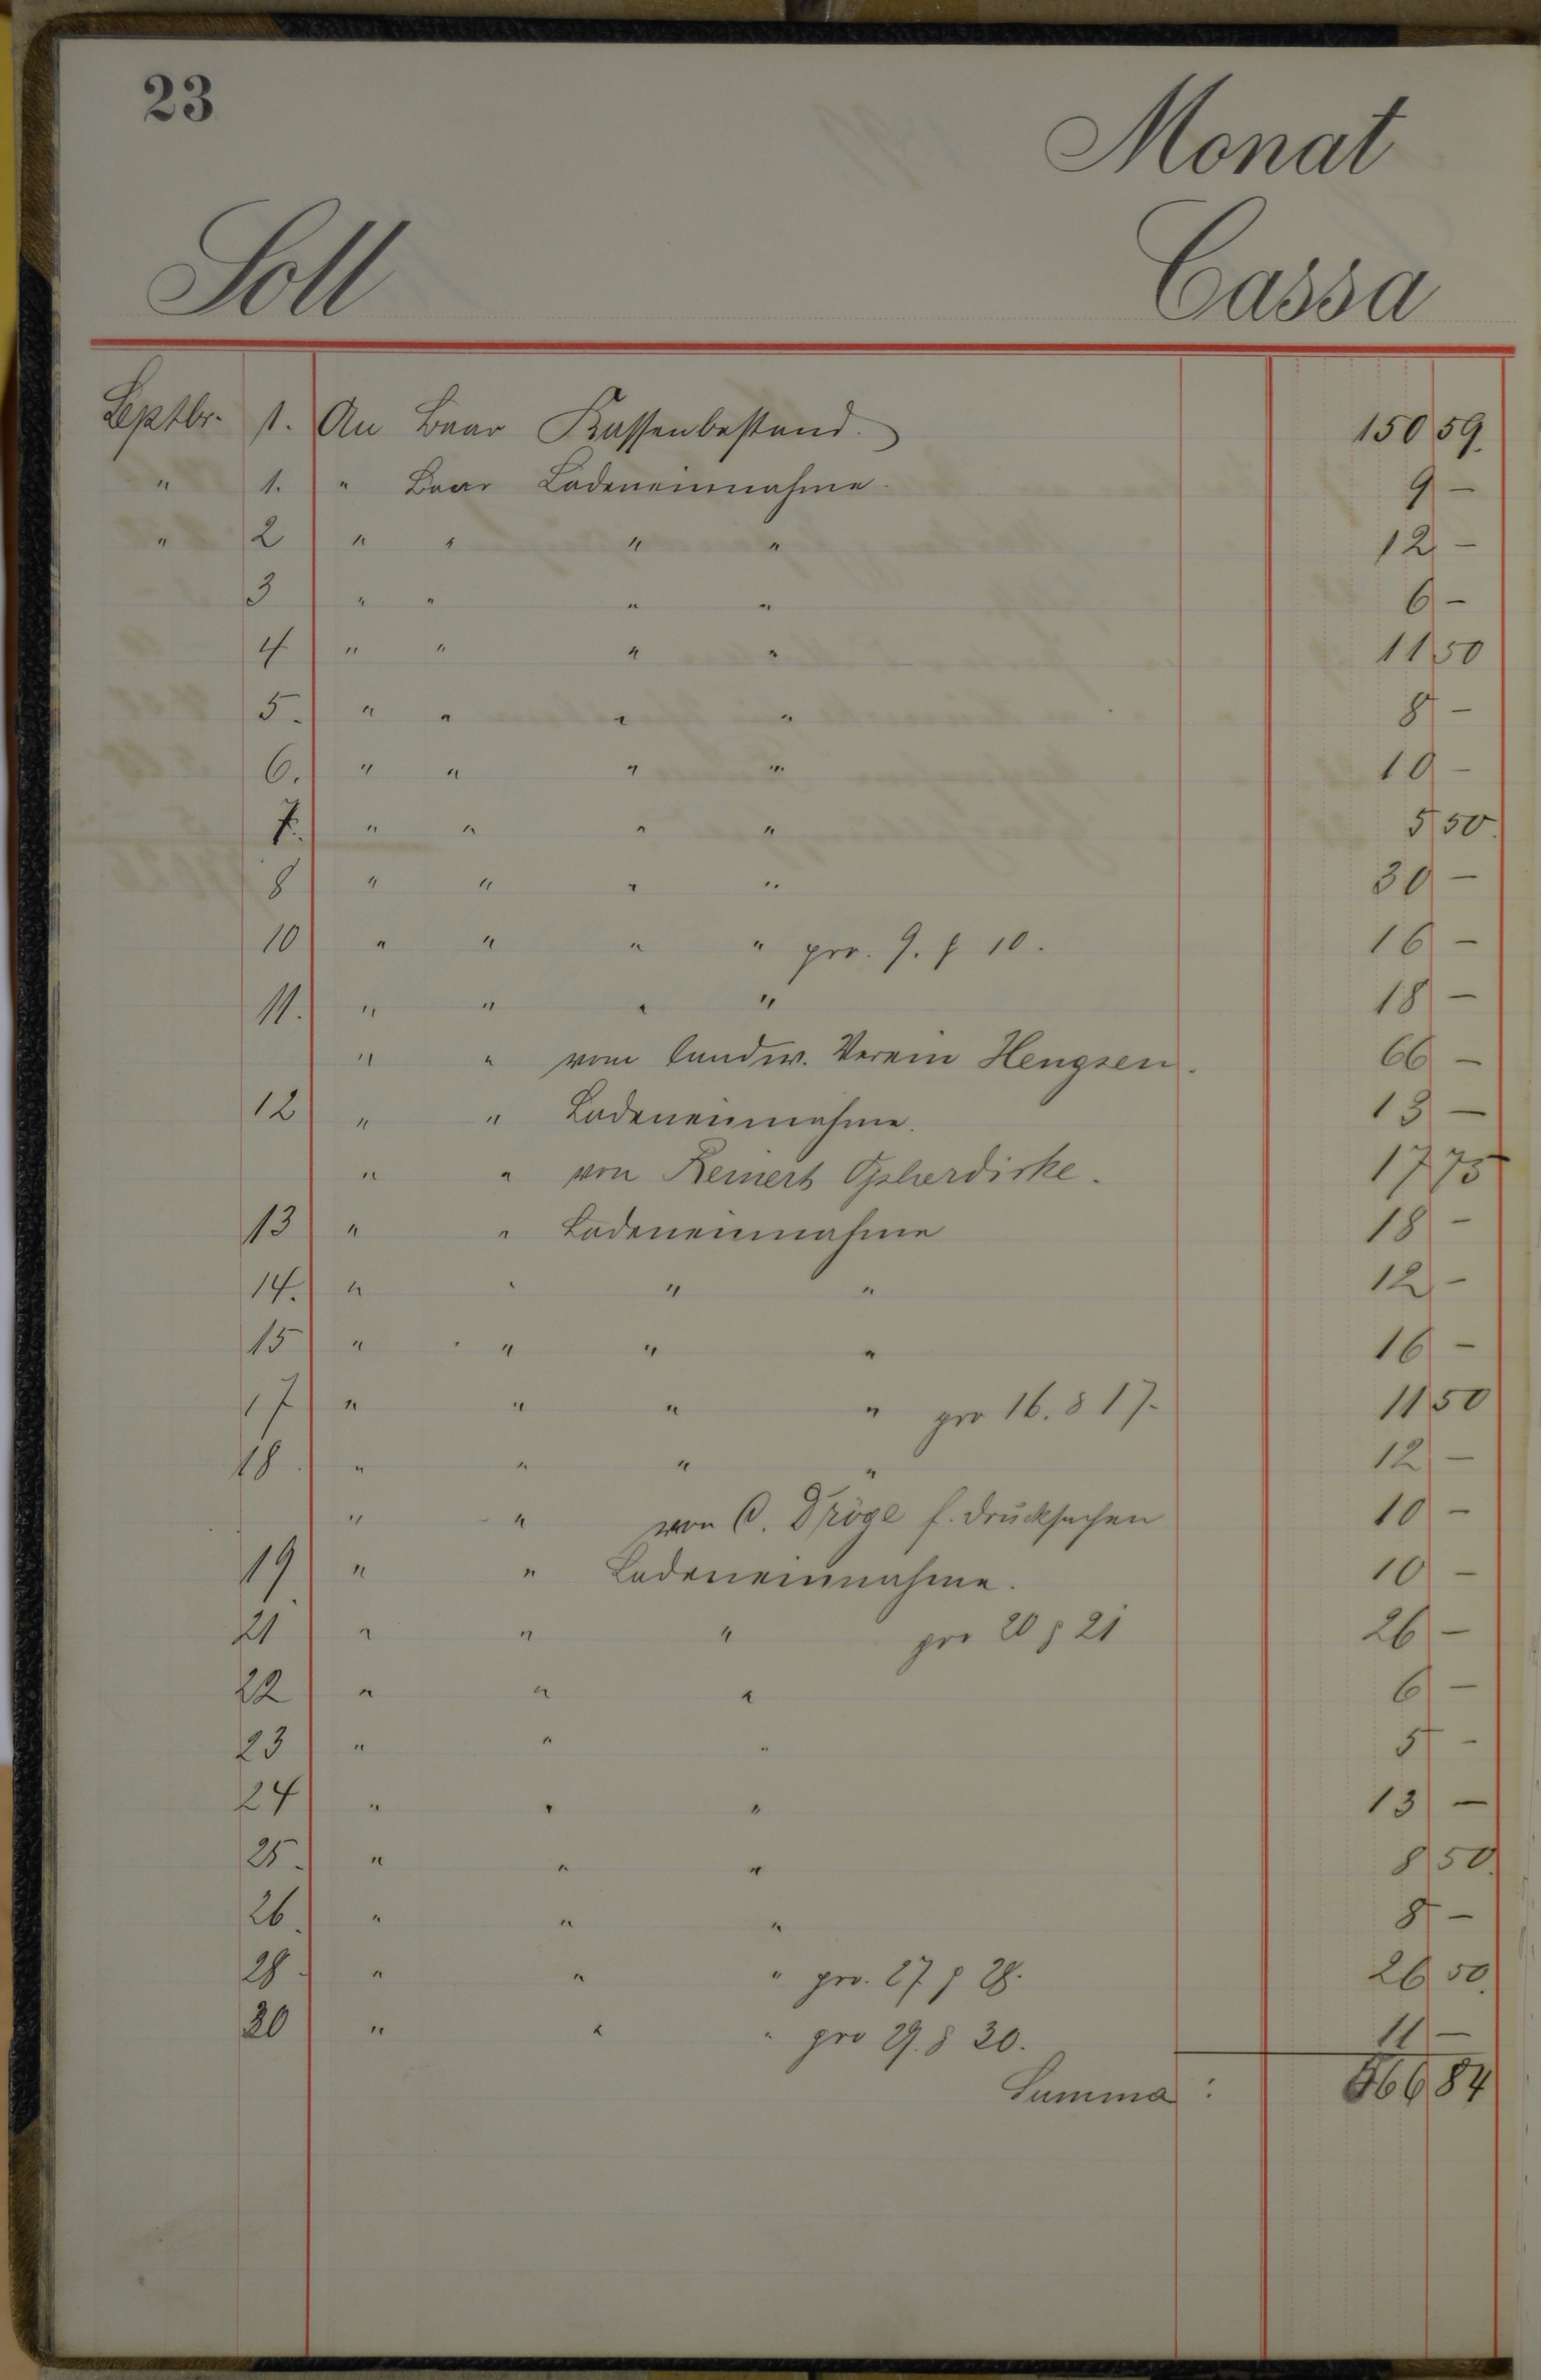 23
Monat
Soll Cassa
Septbr. 1. An Baar Kassenbestand. 150 59.
" 1. " Baar Ladeneinnahme. 9 –
" 2 " " " " 12 –
3 " " " " 6 –
4 " " " " 11 50
5. " " " " 8 –
6. " " " " 10 –
7. " " " " 5 50.
8 " " " " 30 –
10 " " " " pro. 9. & 10. 16 –
11. " " " " 18 –
" " vom landw. Verein Hengsen. 66 –
12 " " Ladeneinnahme. 13 –
" " von Reinert Opherdicke. 17 75
13 " " Ladeneinnahme 18 –
14. " " " " 12 –
15 " " " " 16 –
17 " " " " pro 16. & 17. 11 50
18. " " " " 12 –
" " von C. Dröge f. Drucksachen 10 –
19. " " Ladeneinnahme. 10 –
21 " " " pro 20 & 21 26 –
22 " " " 6 –
23 " " " 5 –
24 " " " 13 –
25. " " " 8 50.
26. " " " 8 –
28. " " " pro. 27. & 28. 26 50.
30 " " " pro 29. & 30. 11 –
Summa : 566 84